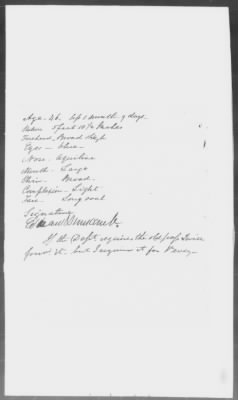 Age - 26. less 1 month 9 days
Stature 5 feet 10 1/2 inches
Forehead - Broad High
Eyes - blue
Nose - aquiline
Mouth - Large
Chin - Broad
Complexion - Light
Face - Long oval
Signature
If the Dept. requires the old pass I will
forwd it - but I require it for